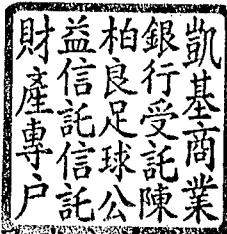 凱基商業
銀行受託陳
柏良足球公
益信託信託
財產專户